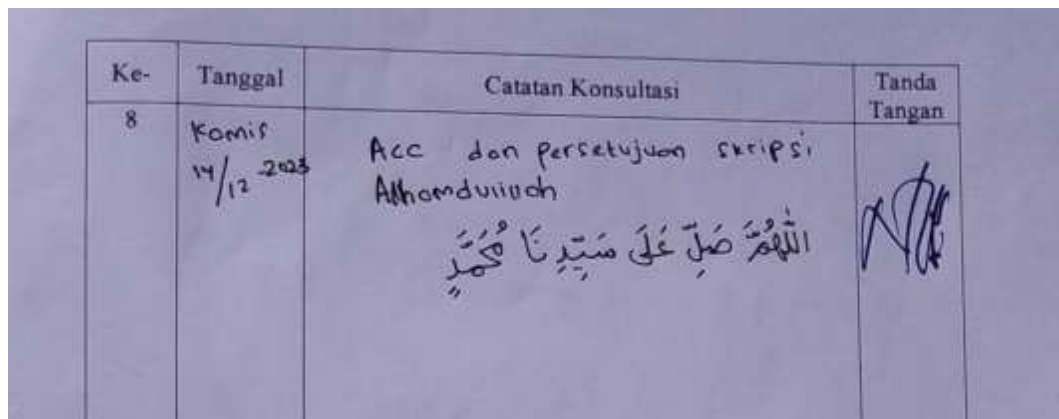 Ke-
Tanggal
Catatan Konsultasi
Tanda
Tangan
8
Kamis
14/12-2023
Acc dan persetujuan skripsi
Alhamdulillah
اللّٰهُمَّ صَلِّ عَلَى سَيِّدِنَا مُحَمَّدٍ